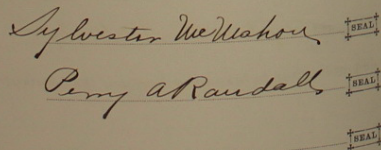 Sylvester McMahon SEAL
Perry A Randall SEAL
SEAL